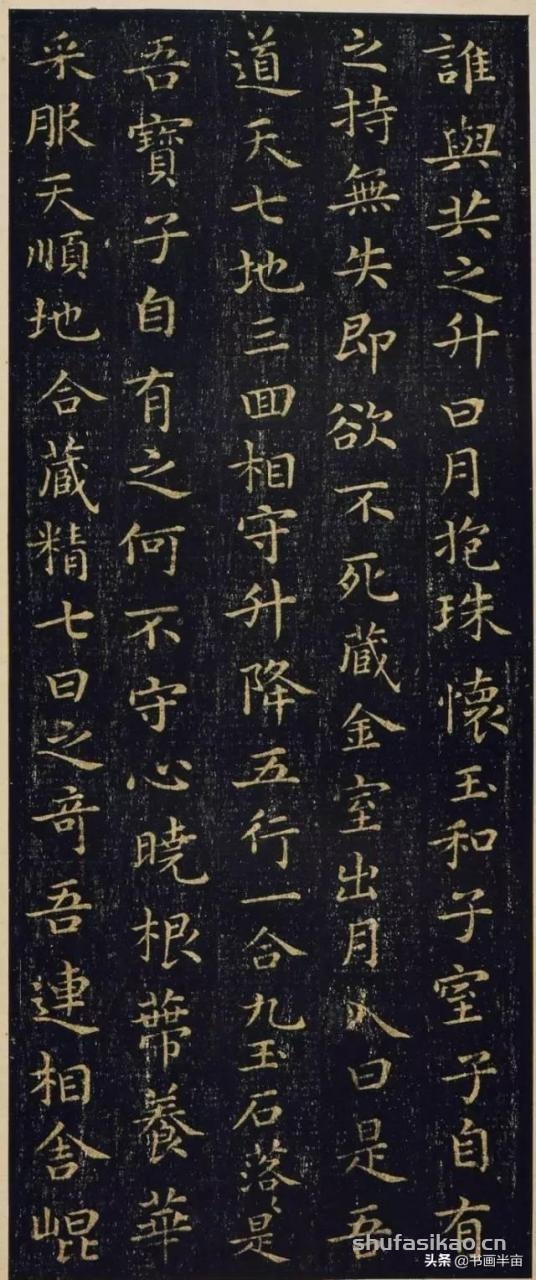 誰與共之升日月抱珠懷玉和子室子自有
之持無失即欲不死藏金室出月入日是吾
道天七地三回相守升降五行一合九玉石落〻是
吾寶子自有之何不守心曉根蔕養華
采服天順地合藏精七日之奇吾連相舍崐
shufasikao.cn
头条 @书画半亩